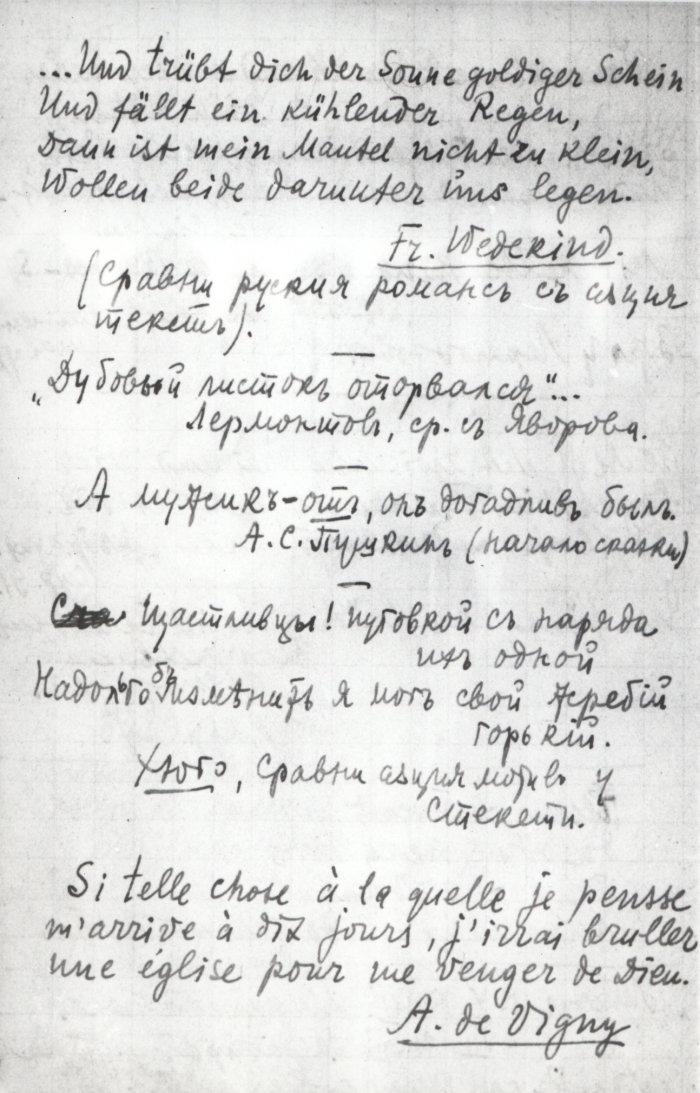 ...Und trübt dich der Sonne goldiger Schein
Und fällt ein kühlender Regen,
Dann ist mein Mantel nicht zu klein,
Wollen beide darunter uns legen.
Fr. Wedekind.
(Сравни руския романсъ съ същия
текстъ).
„Дубовый листокъ оторвался"...
Лермонтовъ, ср. съ Яворова.
А мужикъ-отъ, онъ догадливъ былъ.
А.С. Пушкинъ (начало сказки)
Щастливцы! пуговкой съ наряда
ихъ одной
Надолъго бъ измѣнить я могъ свой жребій
горькій.
Хюго, Сравни същия мотивъ у
Стекети.
Si telle chose à la quelle je pensse
m'arrive à dix jours, j'irrai bruller
une église pour me venger de Dieu.
A. de Vigny